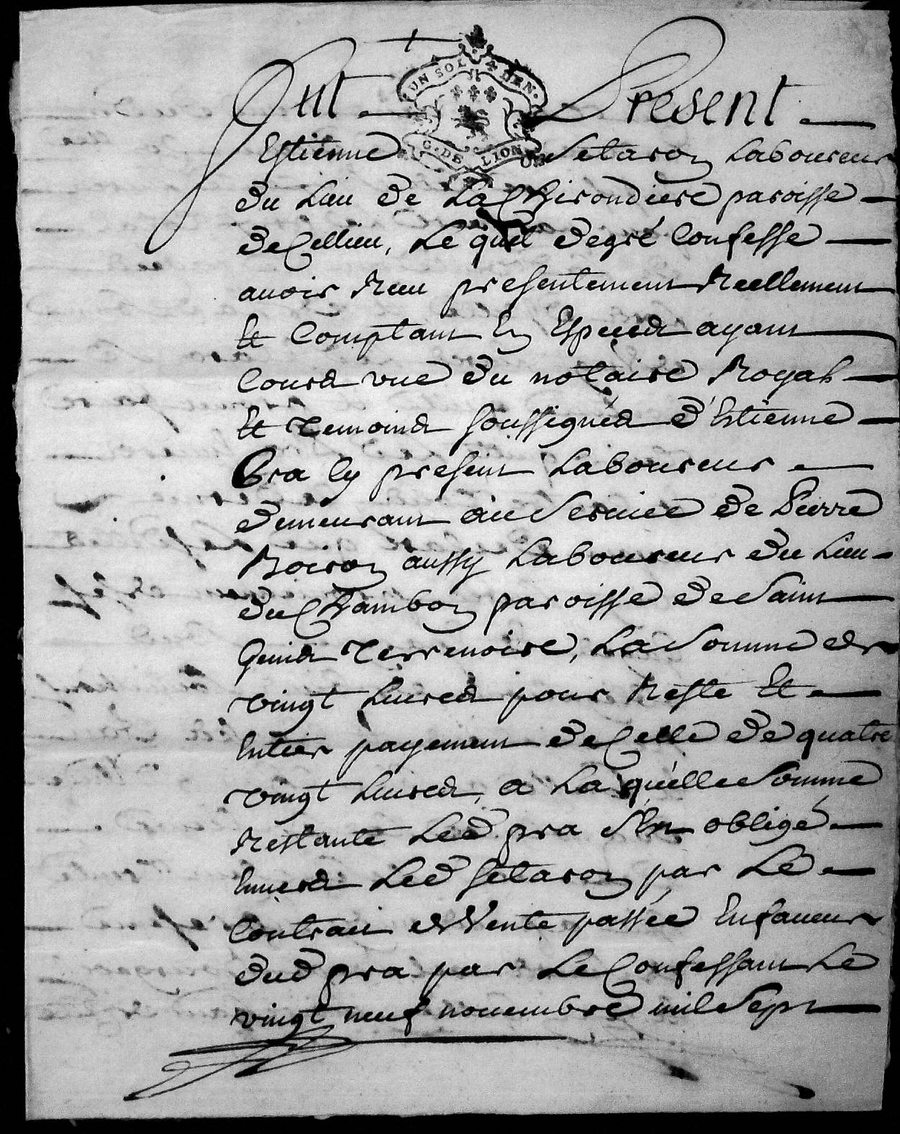 UN SOL DEN.
G. DE LION
fut Present
Estienne Setaron Laboureur
du Lieu de La Chirondiere paroisse
de Cellieu, Lequel de gré Confesse
avoir Receu presentement Reellement
Et Comptant En Especes ayant
Cours vue du notaire Royal
Et Temoins soussignés d'Estienne
pra Icy present Laboureur
demeurant au Service de Pierre
Boiron aussy Laboureur du Lieu
du Chambon paroisse de Saint
Genis Terrenoire, La Somme de
vingt Livres pour Reste Et
Entier payement de Celle de quatre
vingt Livres, a Laquelle Somme
Restante Led pra S'En obligé
Envers Led Setaron par Le
Contrait de Vente passée En faveur
dud pra par Le Confessant Le
vingt neuf novembre mil Sept